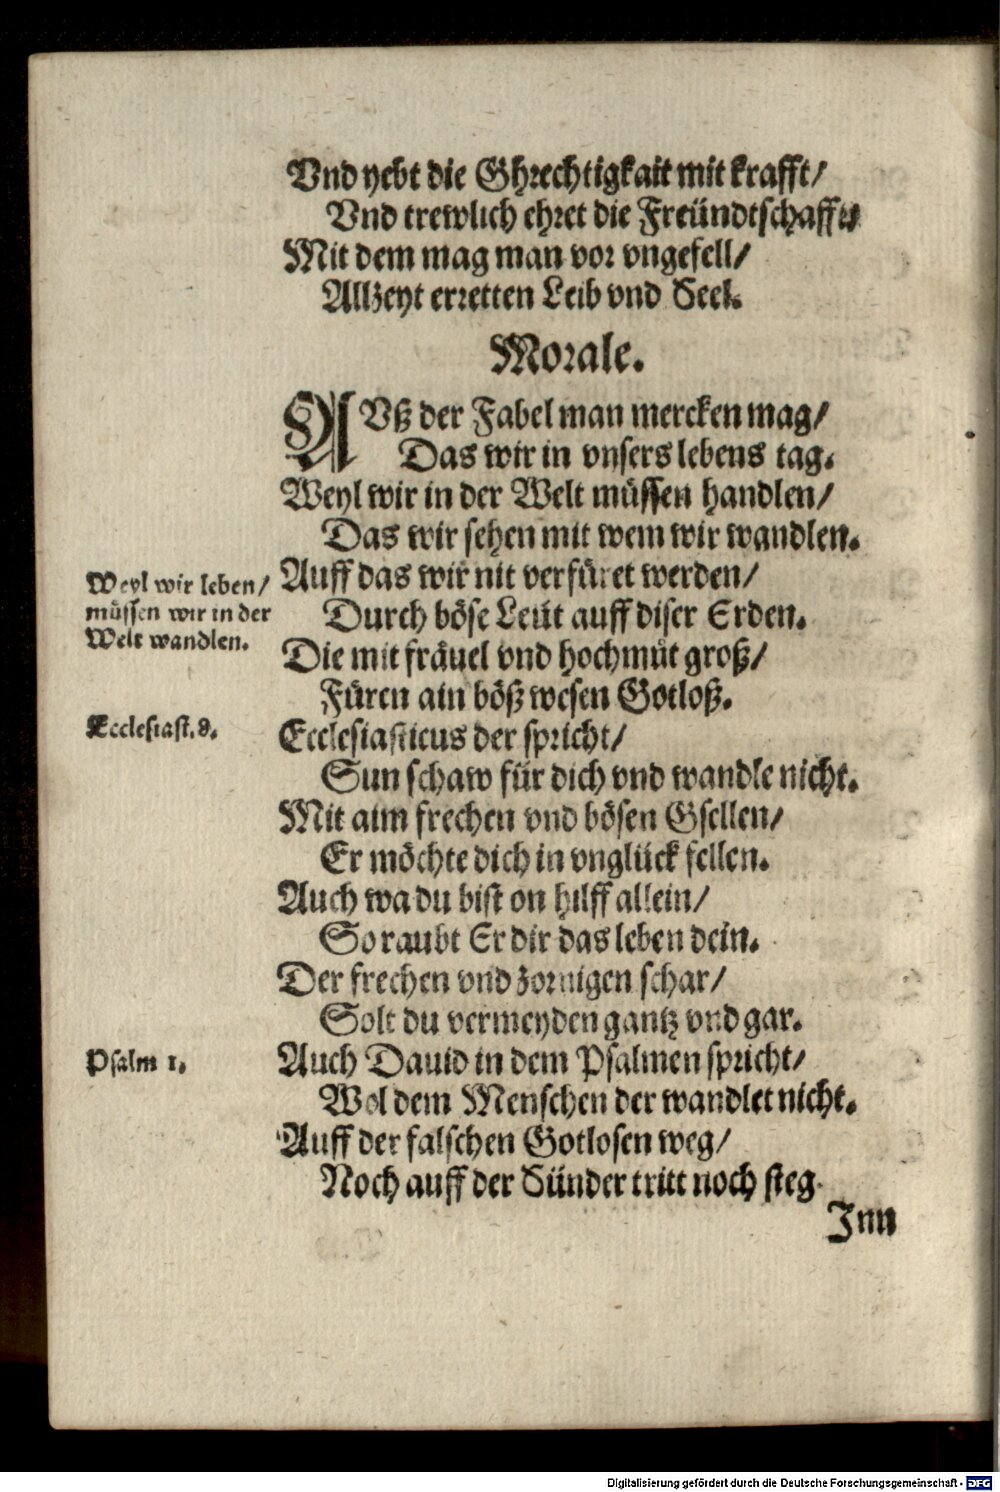 Vnd yebt die Ghrechtigkait mit krafft/
Vnd trewlich ehret die Freündtschafft/
Mit dem mag man vor vngefell/
Allzeyt erretten Leib vnd Seel.
Morale.
AVß der Fabel man mercken mag/
Das wir in vnsers lebens tag.
Weyl wir in der Welt müssen handlen/
Das wir sehen mit wem wir wandlen.
Weyl wir leben/
müssen wir in der
Welt wandlen.
Auff das wir nit verfüret werden/
Durch böse Leüt auff diser Erden.
Die mit fräuel vnd hochmüt groß/
Füren ain böß wesen Gotloß.
Ecclesiast. 8.
Ecclesiasticus der spricht/
Sun schaw für dich vnd wandle nicht.
Mit aim frechen vnd bösen Gsellen/
Er möchte dich in vnglück fellen.
Auch wa du bist on hilff allein/
So raubt Er dir das leben dein.
Der frechen vnd zornigen schar/
Solt du vermeyden gantz vnd gar.
Psalm 1.
Auch Dauid in dem Psalmen spricht/
Wol dem Menschen der wandlet nicht.
Auff der falschen Gotlosen weg/
Noch auff der Sünder tritt noch steg.
Inn
Digitalisierung gefördert durch die Deutsche Forschungsgemeinschaft - DFG